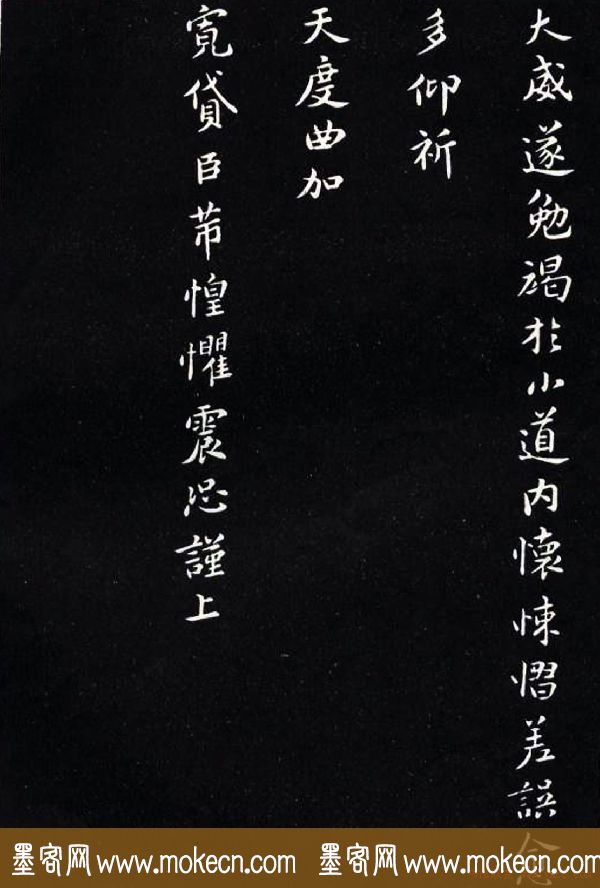 大威遂勉竭於小道内懷悚慴差誤
多仰祈
天度曲加
寬貸臣芾惶懼震恐謹上
墨客网 www.mokecn.com 墨客网 www.mokecn.com